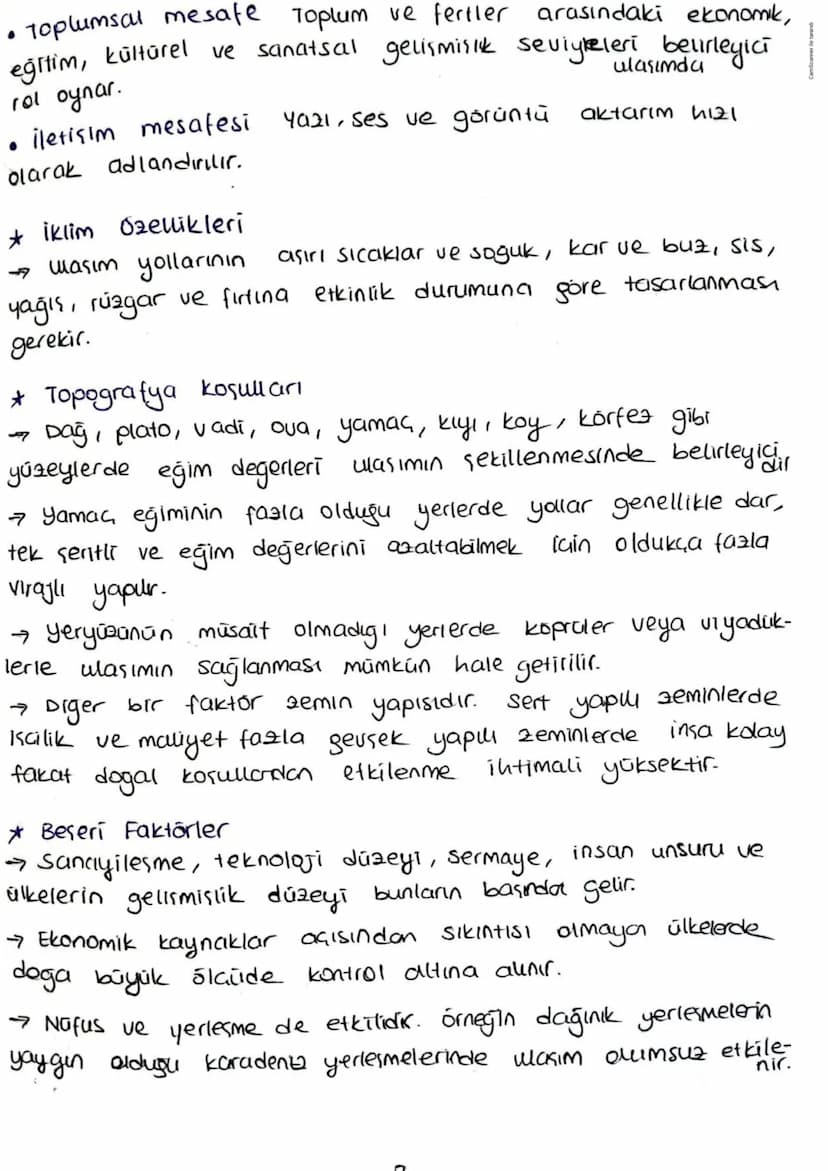 • Toplumsal mesafe Toplum ve fertler arasındaki ekonomik,
eğitim, kültürel ve sanatsal gelişmişlik seviyeleri belirleyici
ulaşımda
rol oynar.
• İletişim mesafesi Yazı, ses ve görüntü aktarım hızı
olarak adlandırılır.
* İklim Özellikleri
→ Ulaşım yollarının aşırı sıcaklar ve soğuk, kar ve buz, sis,
yağış, rüzgar ve fırtına etkinlik durumuna göre tasarlanması
gerekir.
* Topografya Koşulları
→ Dağ, plato, vadi, ova, yamaç, kıyı, koy, körfez gibi
yüzeylerde eğim değerleri ulaşımın şekillenmesinde belirleyici
dir
→ Yamaç eğiminin fazla olduğu yerlerde yollar genellikle dar,
tek şeritli ve eğim değerlerini azaltabilmek için oldukça fazla
virajlı yapılır.
→ Yeryüzünün müsait olmadığı yerlerde köprüler veya viyadük-
lerle ulaşımın sağlanması mümkün hale getirilir.
→ Diğer bir faktör zemin yapısıdır. Sert yapılı zeminlerde
işçilik ve maliyet fazla gevşek yapılı zeminlerde inşa kolay
fakat doğal koşullardan etkilenme ihtimali yüksektir.
* Beşeri Faktörler
→ Sanayileşme, teknoloji düzeyi, sermaye, insan unsuru ve
ülkelerin gelişmişlik düzeyi bunların başında gelir.
→ Ekonomik kaynaklar açısından sıkıntısı olmayan ülkelerde
doğa büyük ölçüde kontrol altına alınır.
→ Nüfus ve yerleşme de etkilidir. Örneğin dağınık yerleşmelerin
yaygın olduğu Karadeniz yerleşmelerinde ulaşım olumsuz etkile-
nir.
CamScanner ile tarandı